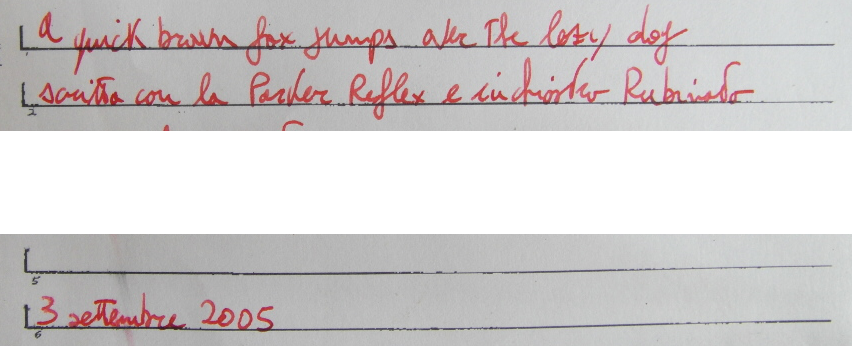 a quick brown fox jumps over the lazy dog
scritta con la Parker Reflex e inchiostro Rubinato
3 settembre 2005